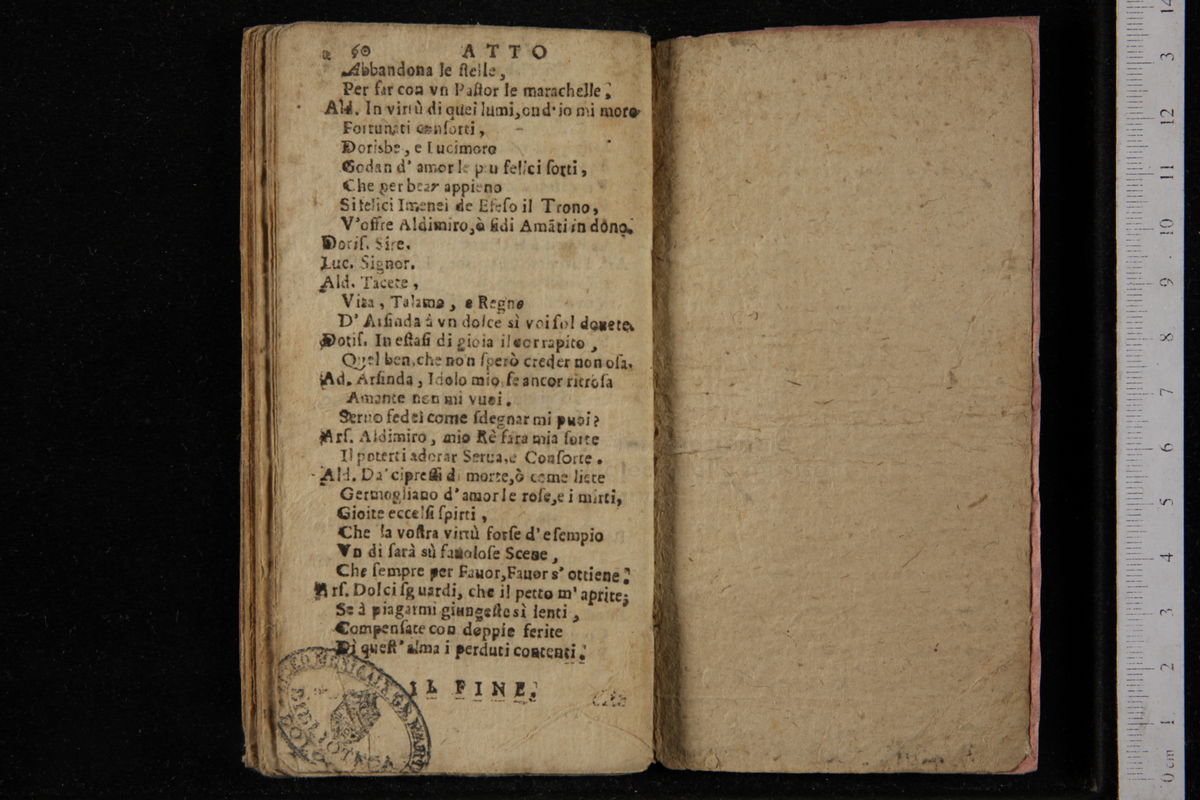 60 ATTO
Abbandona le ſtelle,
Per far con vn Paſtor le marachelle.
Ald. In virtù di quei lumi, ond' io mi moro
Fortunati conſorti,
Dorisbe, e Lucimoro
Godan d' amor le piu felici ſorti,
Che per bear appieno
Si felici Imenei de Efeſo il Trono,
V'offre Aldimiro, ò fidi Amāti in dono.
Doriſ. Sire.
Luc. Signor.
Ald. Tacete,
Vita, Talamo, e Regno
D' Arſinda à vn dolce sì voi ſol douete.
Doriſ. In eſtaſi di gioia il cor rapito,
Quel ben, che non ſperò creder non oſa.
Ad. Arſinda, Idolo mio, ſe ancor ritroſa
Amante non mi vuoi.
Seruo fedel come ſdegnar mi puoi?
Arſ. Aldimiro, mio Rè ſarà mia ſorte
Il poterti adorar Serua, e Conſorte.
Ald. Da' cipreſſi di morte, ò come liete
Germogliano d' amor le roſe, e i mirti,
Gioite eccelſi ſpirti,
Che la voſtra virtù forſe d' eſempio
Vn di ſarà sù fauoloſe Scene,
Che ſempre per Fauor, Fauor s' ottiene.
Arſ. Dolci ſguardi, che il petto m' aprite;
Se à piagarmi giungeſte sì lenti,
Compenſate con doppie ferite
Di queſt' alma i perduti contenti.
IL FINE.
BIBLIOTECA
14
3
12
11
10
9
8
7
6
5
4
3
2
1
0 cm